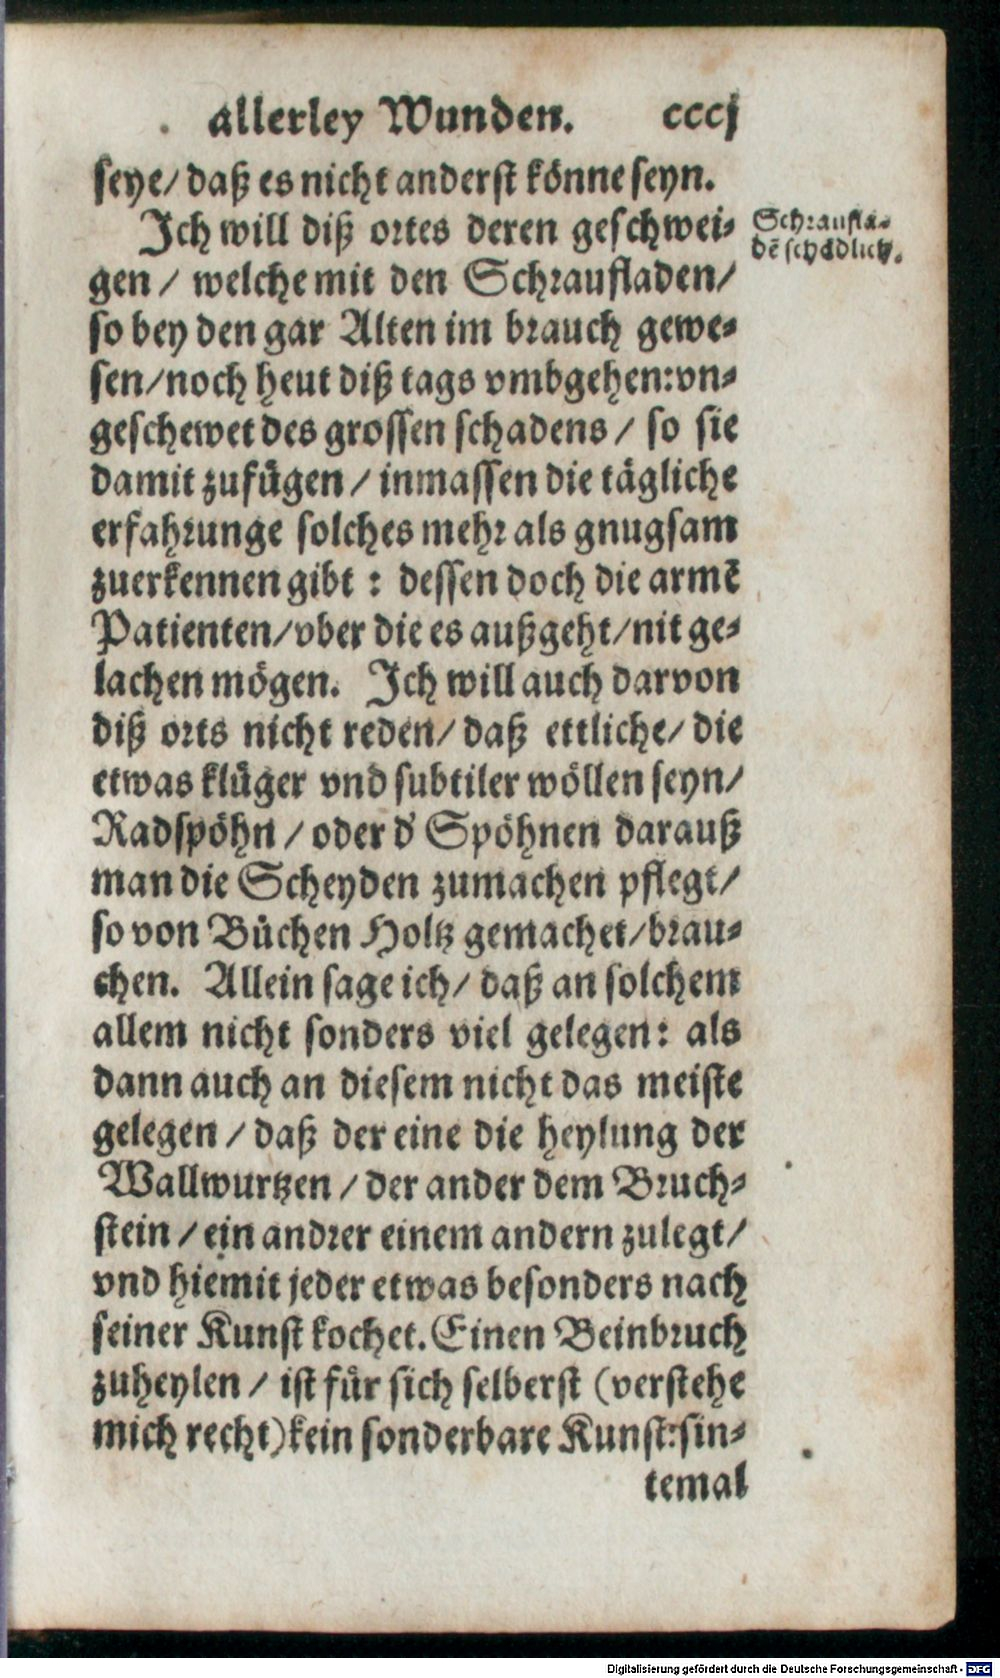 allerley Wunden. cccj
seye/ daß es nicht anderst könne seyn.
Ich will diß ortes deren geschwei-
gen / welche mit den Schraufladen/
so bey den gar Alten im brauch gewe-
sen/noch heut diß tags vmbgehen:vn-
geschewet des grossen schadens / so sie
damit zufügen / inmassen die tägliche
erfahrunge solches mehr als gnugsam
zuerkennen gibt : dessen doch die armẽ
Patienten/vber die es außgeht/nit ge-
lachen mögen. Ich will auch darvon
diß orts nicht reden/ daß ettliche/ die
etwas klüger vnd subtiler wöllen seyn/
Radspöhn / oder d' Spöhnen darauß
man die Scheyden zumachen pflegt/
so von Büchen Holtz gemachet/brau-
chen. Allein sage ich/ daß an solchem
allem nicht sonders viel gelegen: als
dann auch an diesem nicht das meiste
gelegen / daß der eine die heylung der
Wallwurtzen / der ander dem Bruch-
stein / ein andrer einem andern zulegt/
vnd hiemit jeder etwas besonders nach
seiner Kunst kochet. Einen Beinbruch
zuheylen / ist für sich selberst (verstehe
mich recht)kein sonderbare Kunst:sin-
temal
Schraufla-
dẽ schädlich.
Digitalisierung gefördert durch die Deutsche Forschungsgemeinschaft - DFG